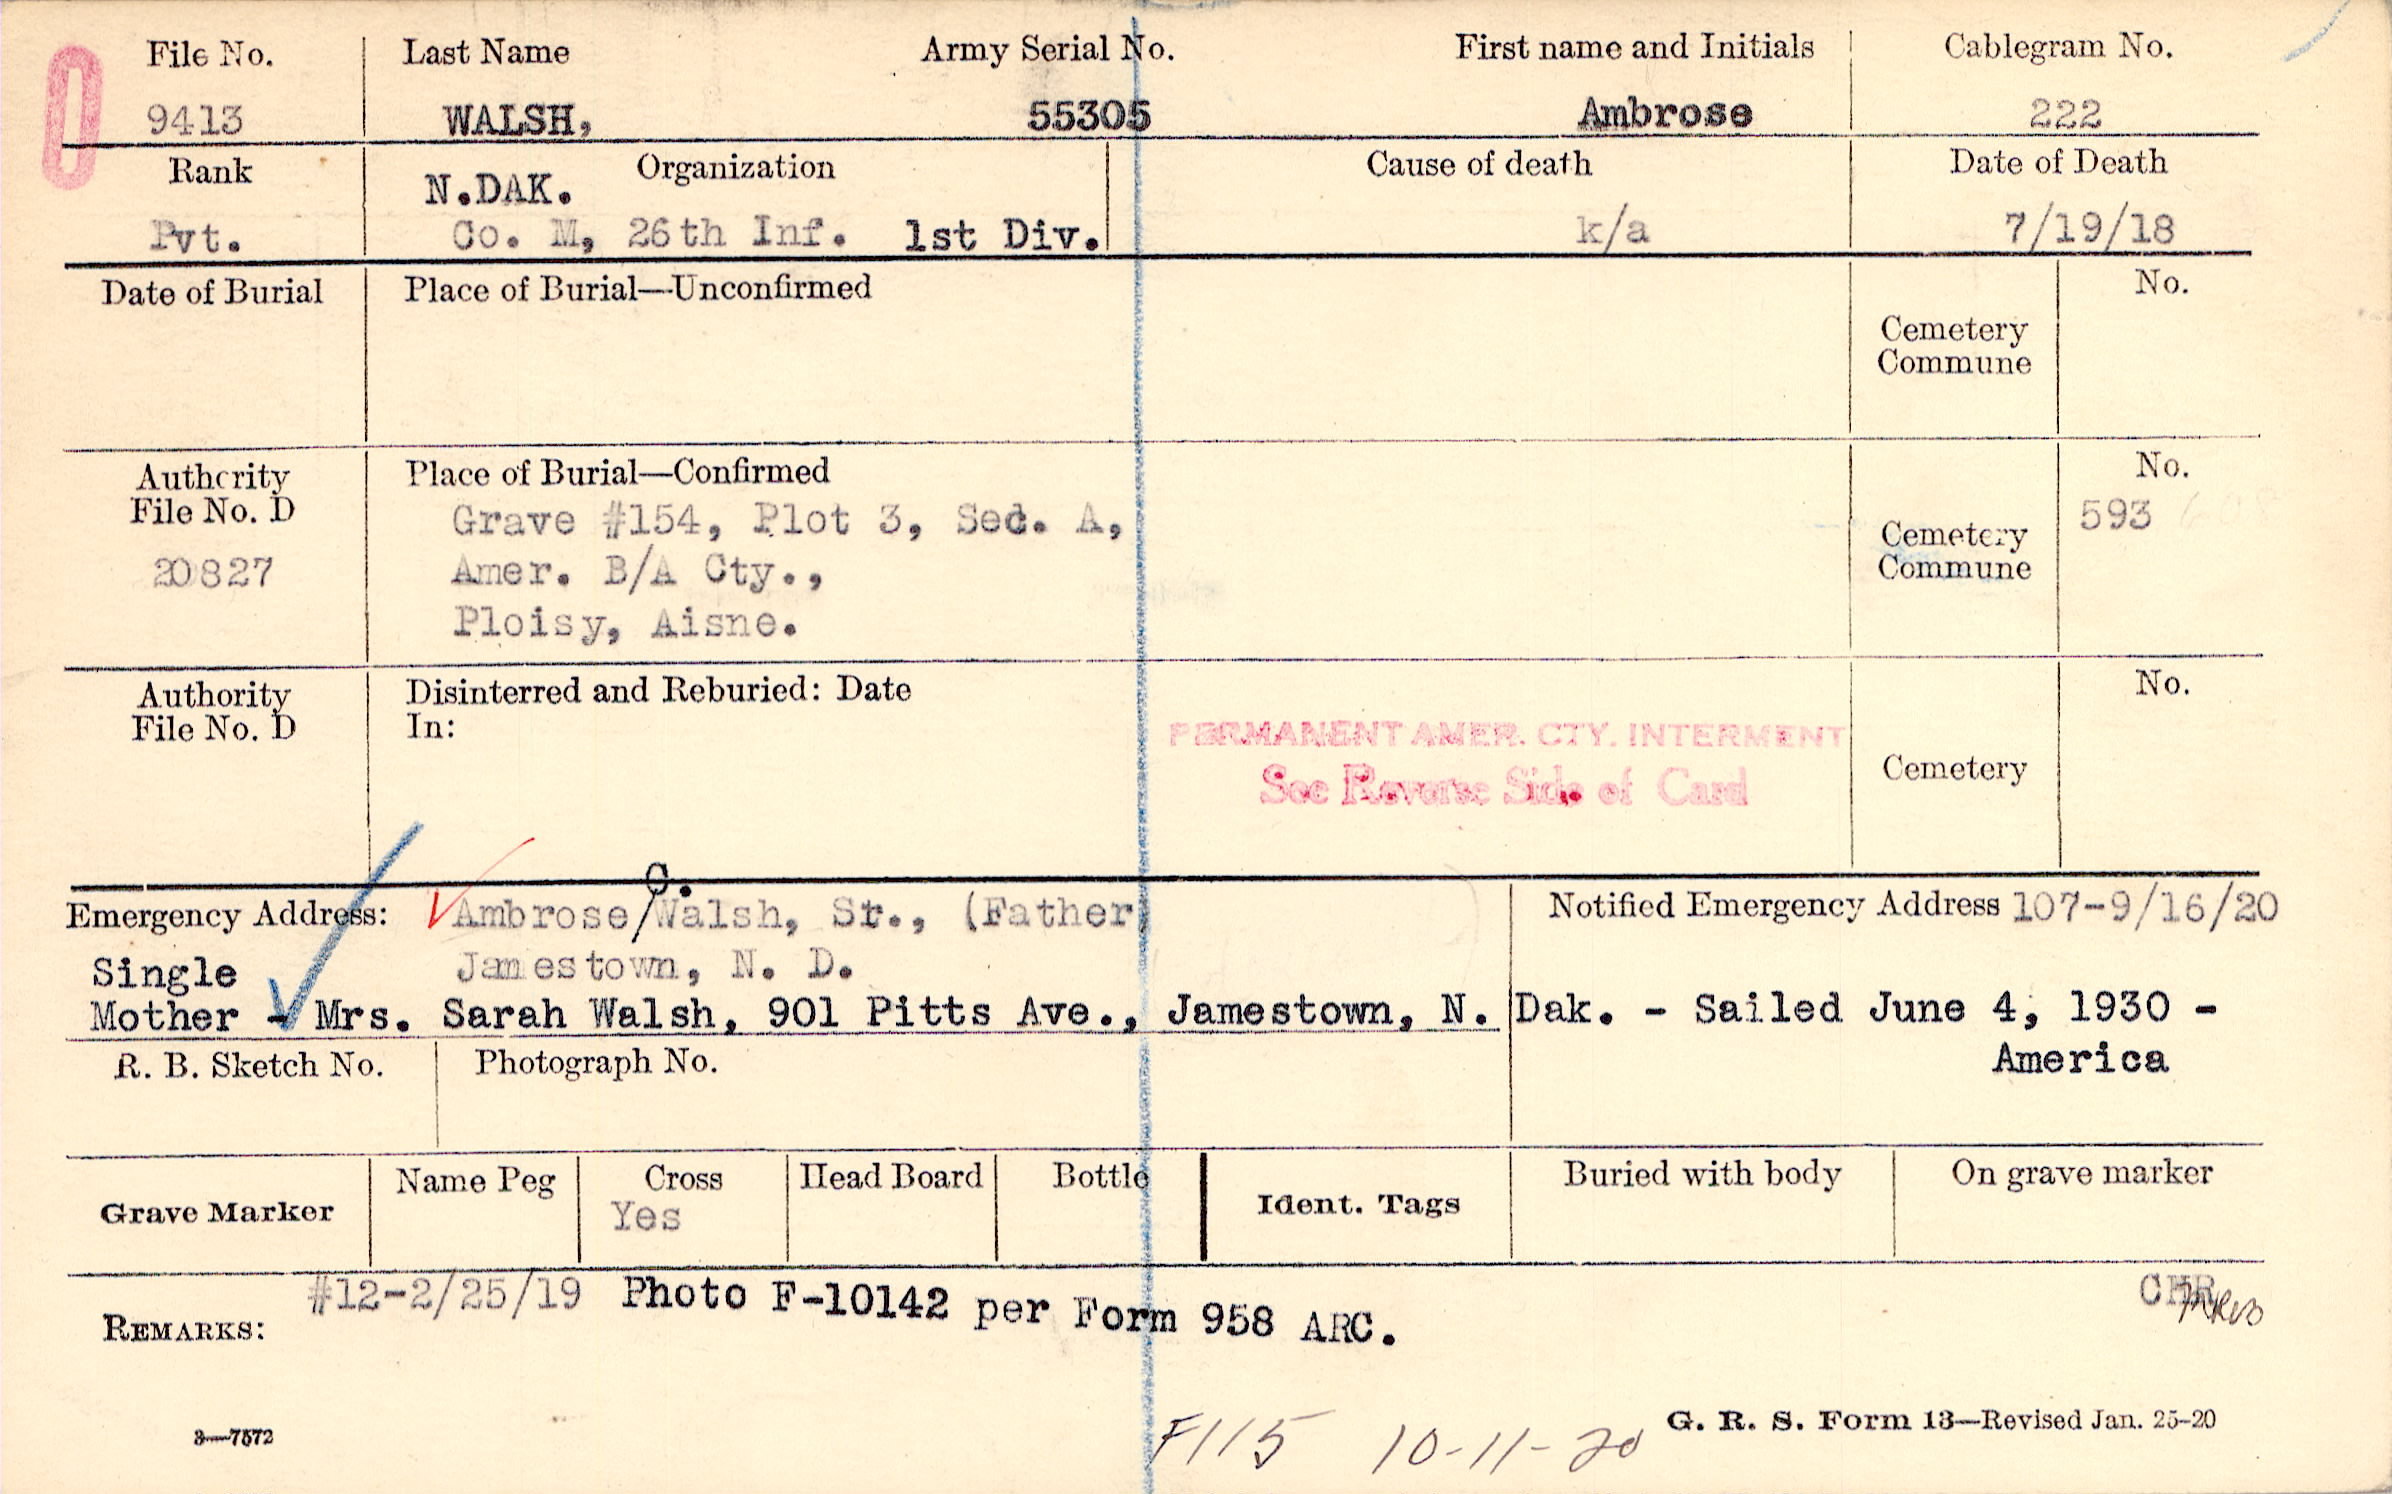 File No. Last Name Army Serial No. First name and Initials Cablegram No.
9413 WALSH, 55305 Ambrose 222
Rank Organization Cause of death Date of Death
N.DAK.
Pvt. Co. M, 26th Inf. 1st Div. k/a 7/19/18
Date of Burial Place of Burial—Unconfirmed No.
Cemetery
Commune
Authority Place of Burial—Confirmed No.
File No. D Grave #154, Plot 3, Sec. A, 593
Cemetery
20827 Amer. B/A Cty., Commune
Ploisy, Aisne.
Authority Disinterred and Reburied: Date No.
File No. D In:
PERMANENT AMER. CTY. INTERMENT
Cemetery
See Reverse Side of Card
C.
Emergency Address: Ambrose/Walsh, Sr., (Father) Notified Emergency Address 107-9/16/20
Single Jamestown, N. D.
Mother - Mrs. Sarah Walsh, 901 Pitts Ave., Jamestown, N. Dak. - Sailed June 4, 1930 -
America
R. B. Sketch No. Photograph No.
Name Peg Cross Head Board Bottle Buried with body On grave marker
Grave Marker Yes Ident. Tags
#12-2/25/19 Photo F-10142 per Form 958 ARC.
REMARKS:
F115 10-11-20
3—7572 G. R. S. Form 13—Revised Jan. 25-20